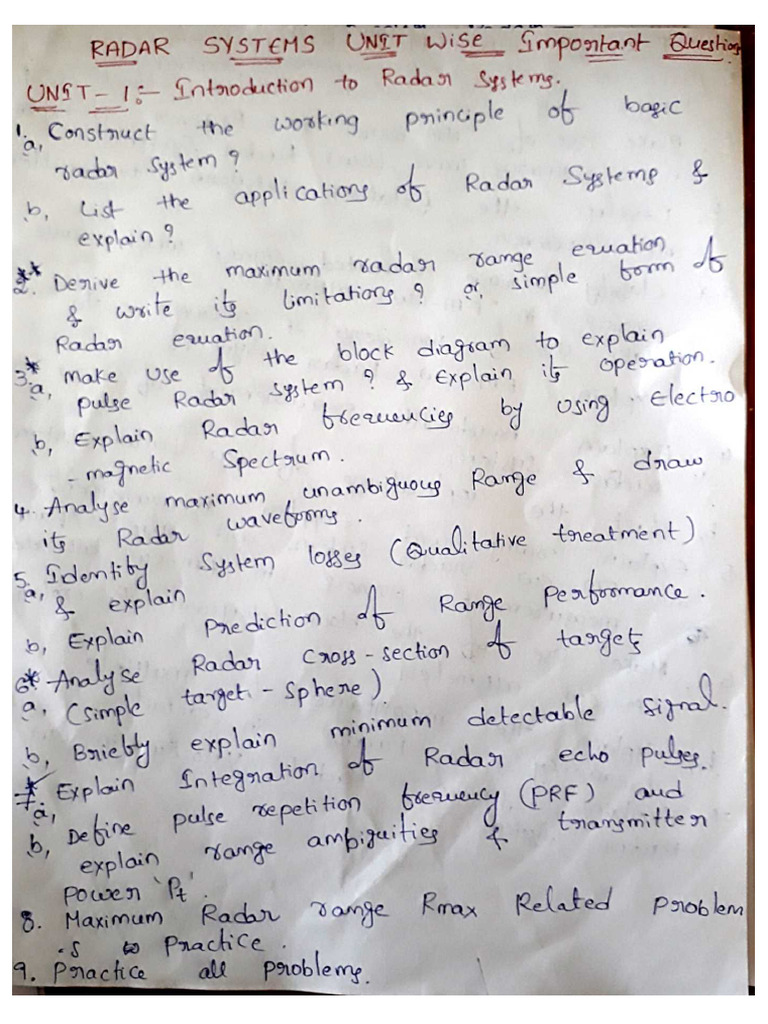 RADAR SYSTEMS UNIT WiSE Important Questions
UNIT-1:- Introduction to Radar Systems.
1. a, Construct the working principle of basic
radar system?
b, List the applications of Radar Systems &
explain?
**
2. Derive the maximum radar range equation
& write its limitations? or simple form of
Radar equation.
3.* a, Make use of the block diagram to explain
pulse Radar system? & Explain its operation.
b, Explain Radar frequencies by using Electro
-magnetic Spectrum.
4. Analyse maximum unambiguous Range & draw
its Radar waveforms.
5. a, Identify System losses (Qualitative treatment)
& explain
b, Explain Prediction of Range Performance.
6* Analyse Radar cross-section of targets
a, (simple target - sphere)
b, Briefly explain minimum detectable signal.
7.* a, Explain Integration of Radar echo pulses.
b, Define pulse repetition frequency (PRF) and
explain range ambiguities & transmitter
power 'Pt'.
8. Maximum Radar range Rmax Related Problem
-s to Practice.
9. Practice all problems.